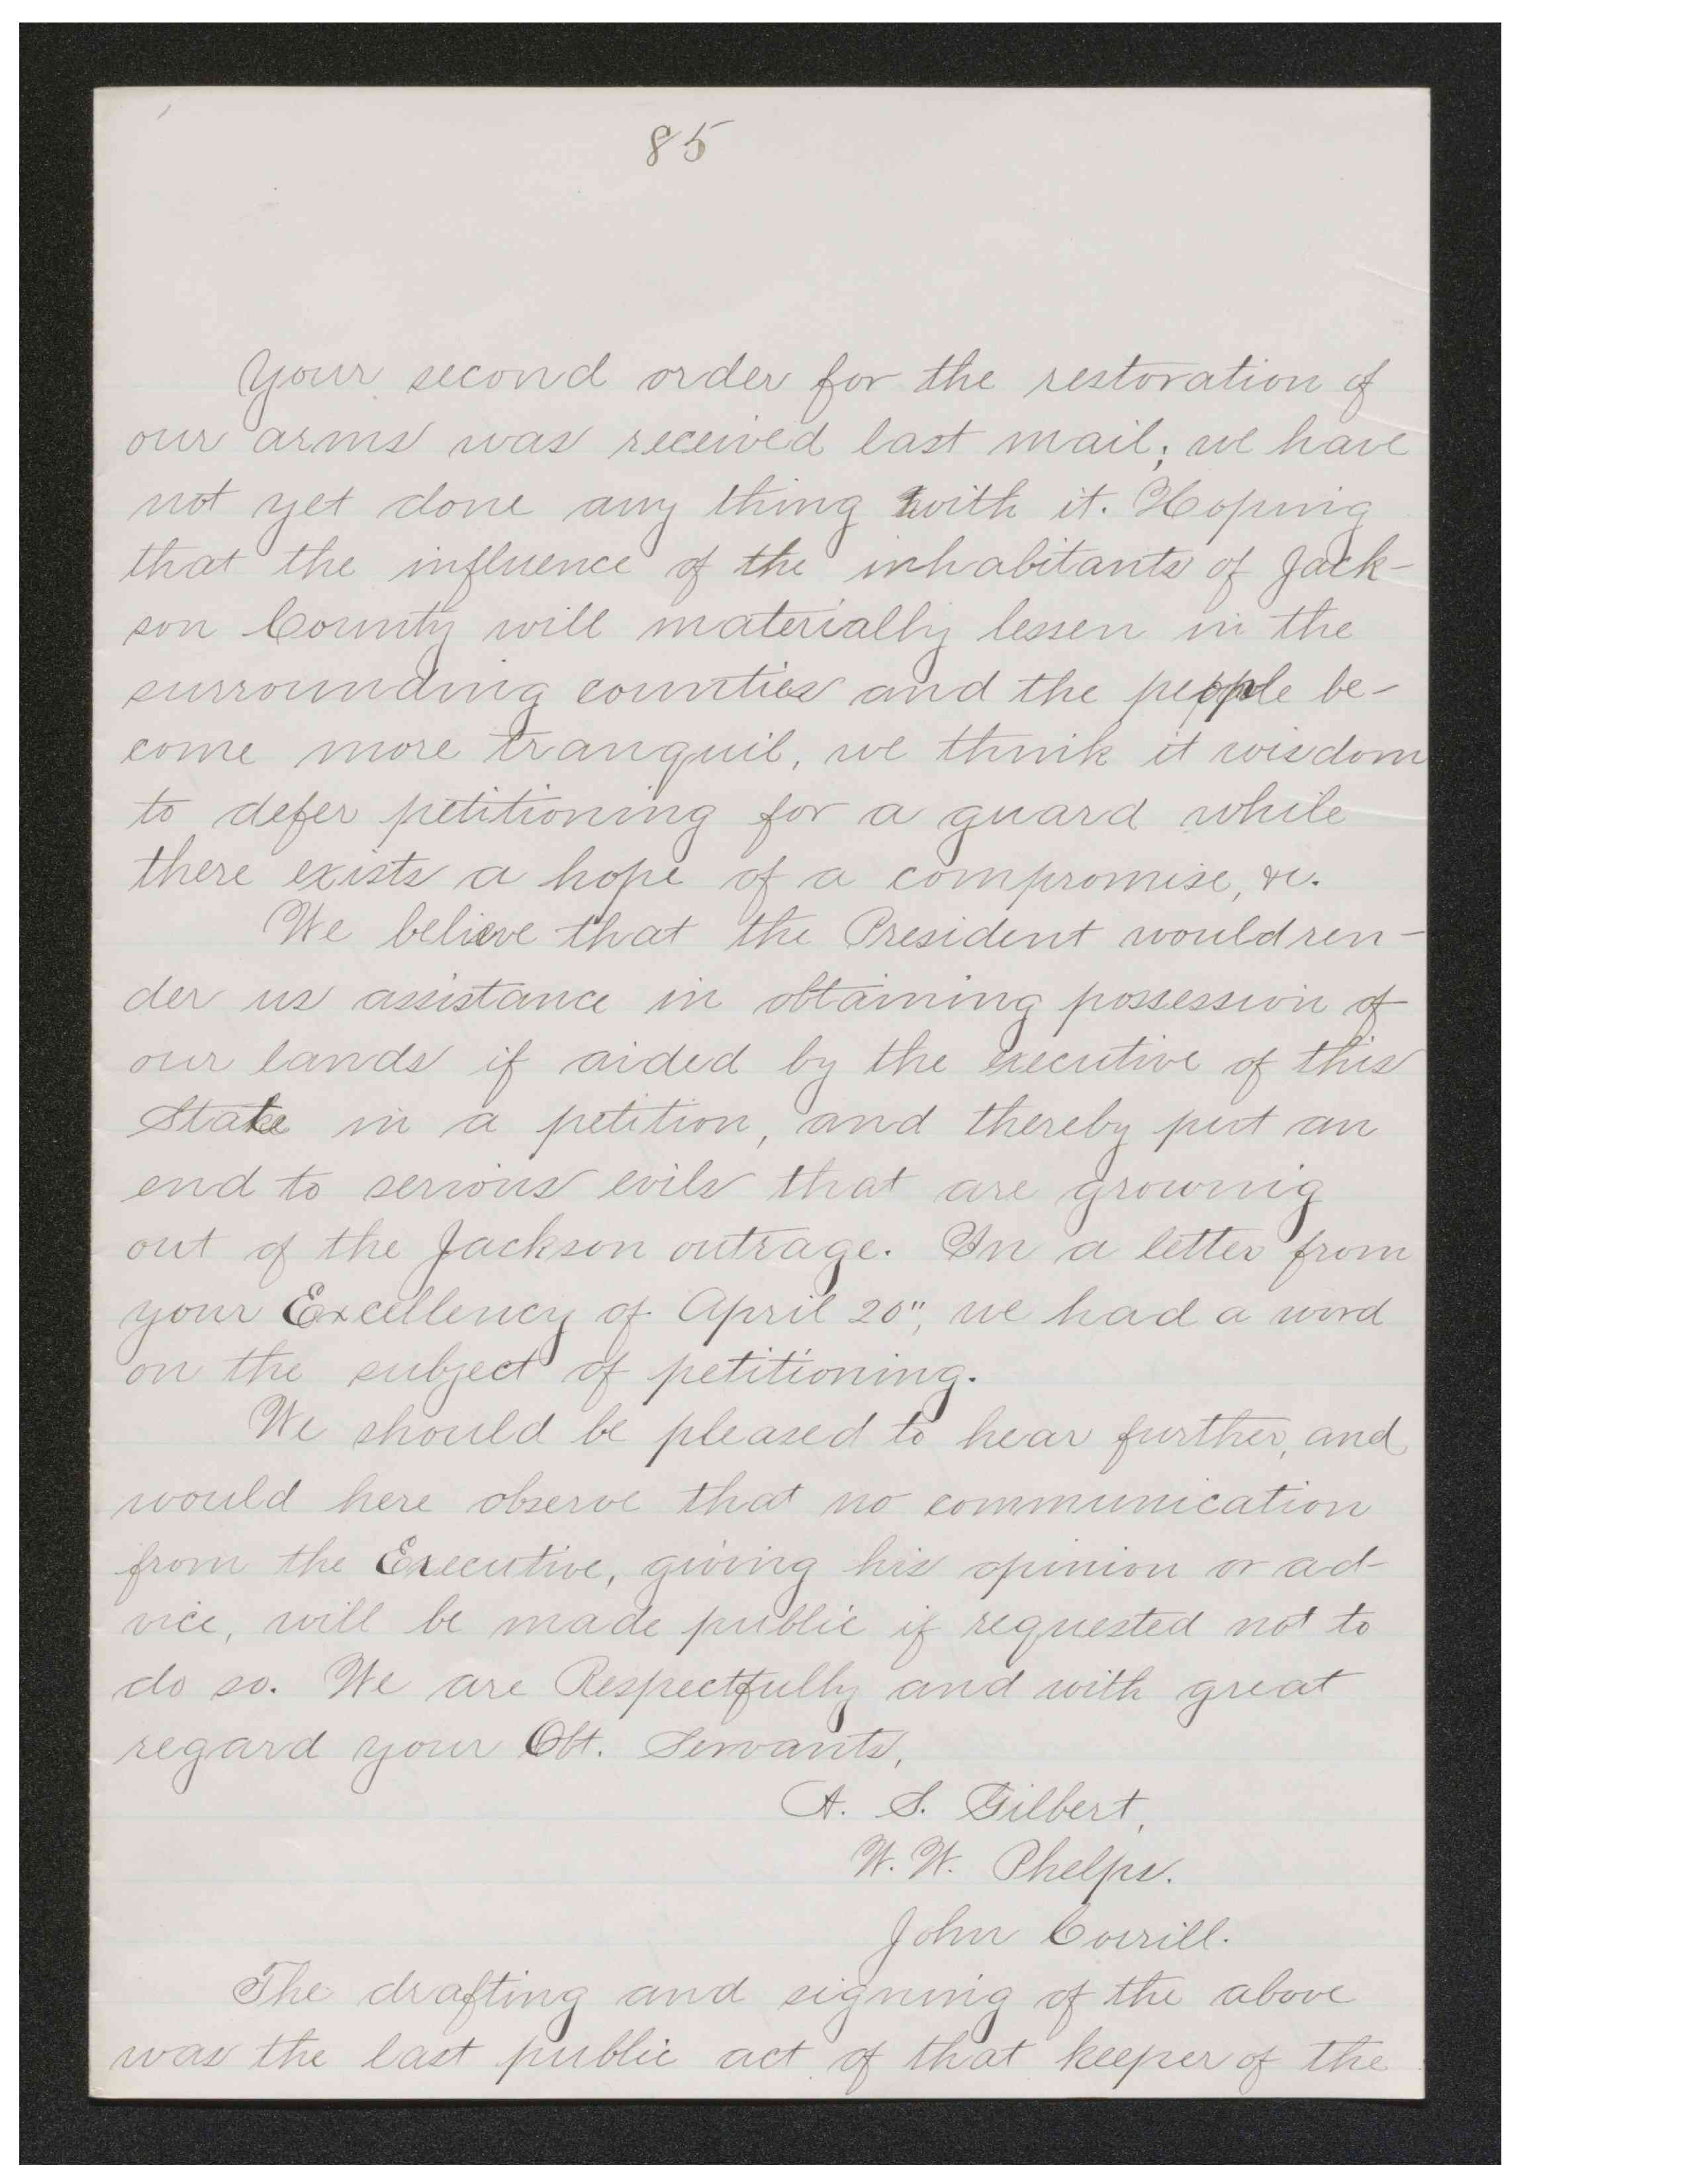 85
Your second order for the restoration of
our arms was received last mail; we have
not yet done any thing with it. Hoping
that the influence of the inhabitants of Jack-
son County will materially lessen in the
surrounding counties and the people be-
come more tranquil, we think it wisdom
to defer petitioning for a guard while
there exists a hope of a compromise, &c.
We believe that the President would ren-
der us assistance in obtaining possession of
our lands if aided by the executive of this
State in a petition, and thereby put an
end to serious evils that are growing
out of the Jackson outrage. In a letter from
your Excellency of April 20", we had a word
on the subject of petitioning.
We should be pleased to hear further, and
would here observe that no communication
from the Executive, giving his opinion or ad-
vice, will be made public if requested not to
do so. We are Respectfully and with great
regard your Obt. Servants,
A. S. Gilbert,
W. W. Phelps.
John Corrill.
The drafting and signing of the above
was the last public act of that keeper of the